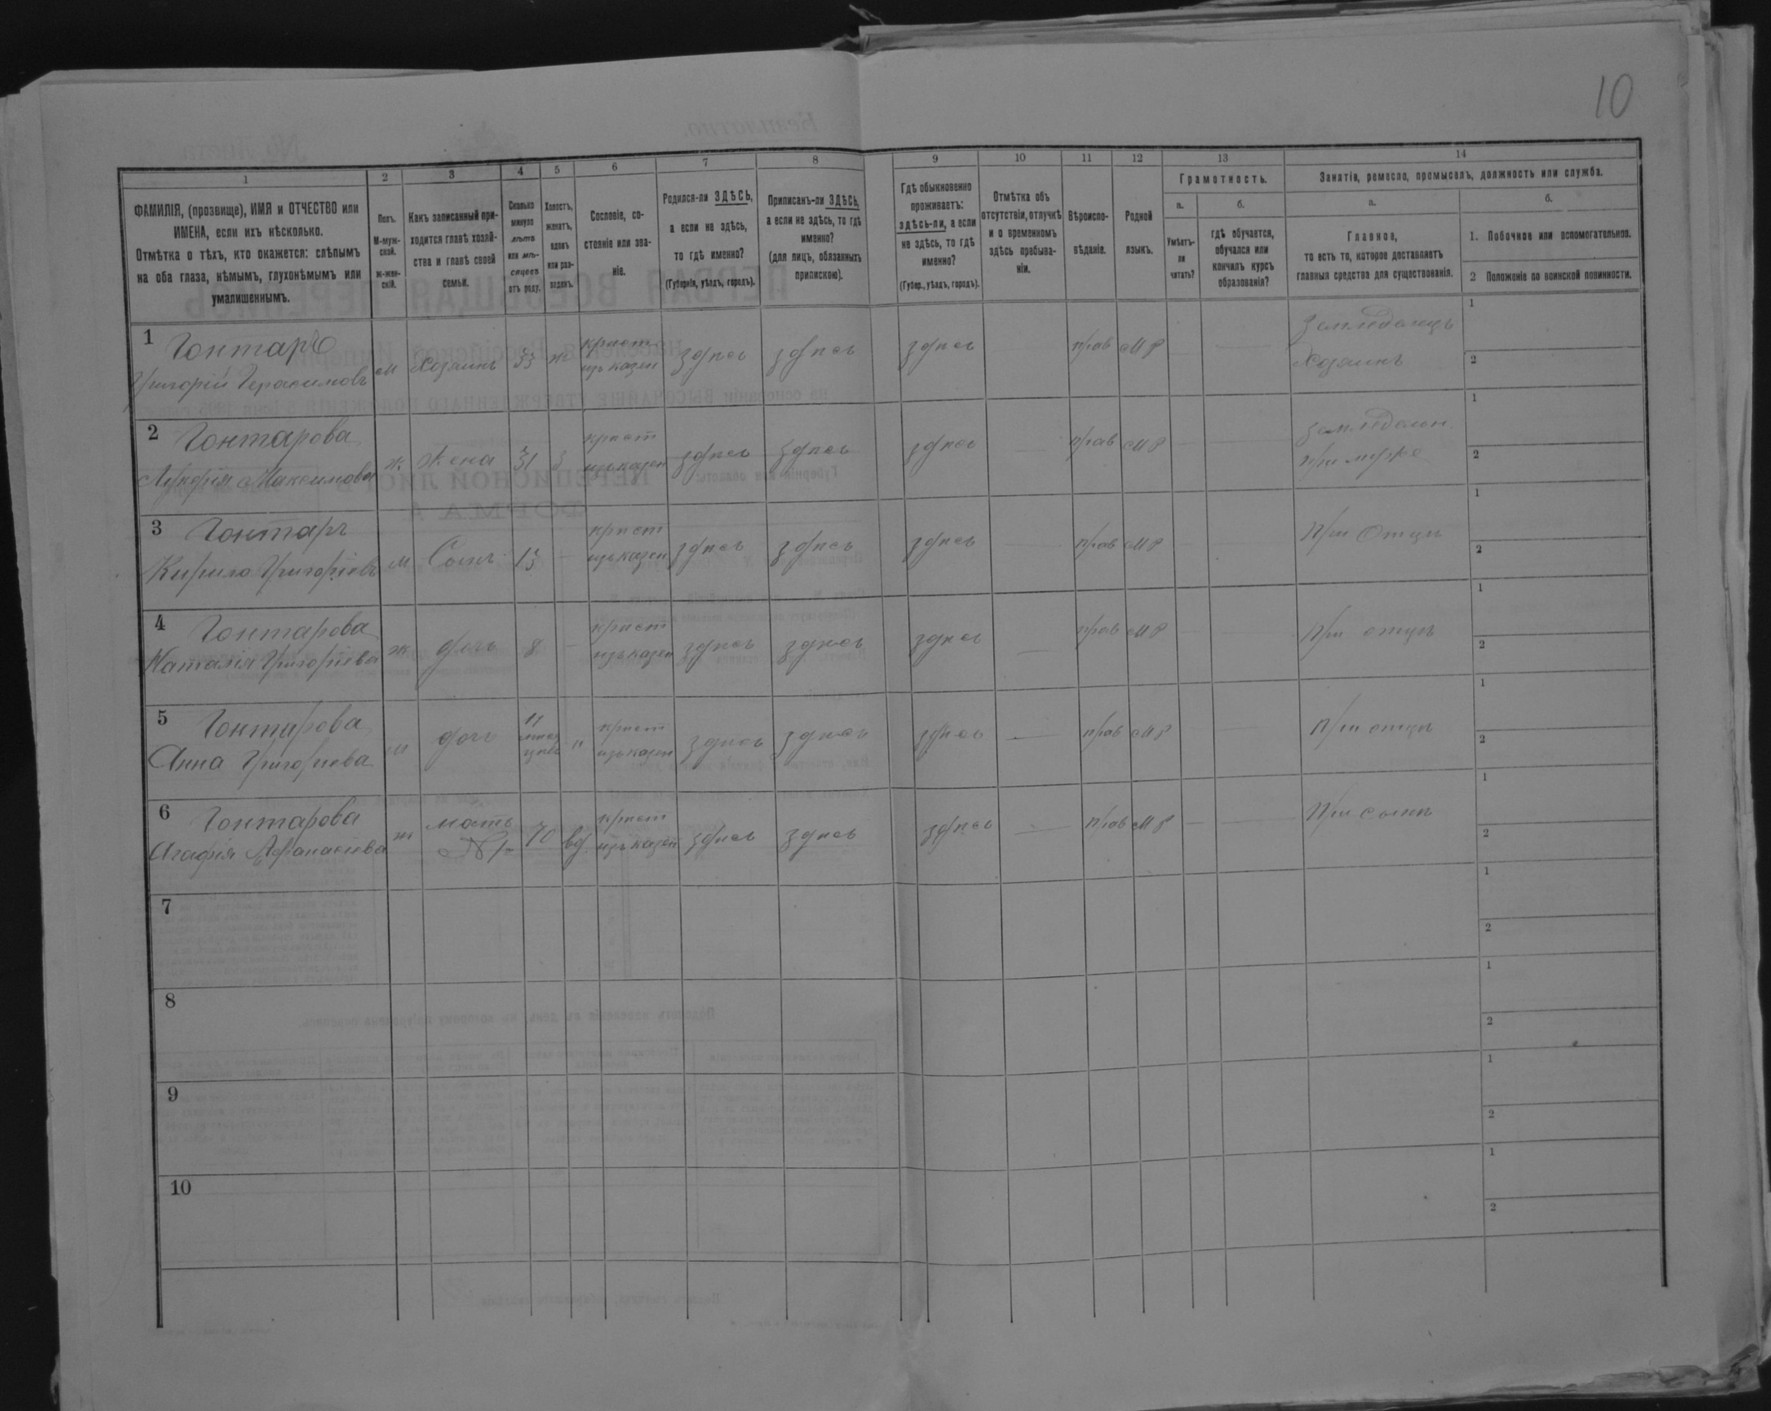 10
1 2 3 4 5 6 7 8 9 10 11 12 13 14
ФАМИЛІЯ, (прозвище), ИМЯ и ОТЧЕСТВО или
ИМЕНА, если ихъ нѣсколько.
Отмѣтка о тѣхъ, кто окажется: слѣпымъ
на оба глаза, нѣмымъ, глухонѣмымъ или
умалишеннымъ.
Полъ.
М-муж-
ской.
ж-жен-
скій.
Какъ записанный при-
ходится главѣ хозяй-
ства и главѣ своей
семьи.
Сколько
минуло
лѣтъ
или мѣ-
сяцевъ
отъ роду.
Холостъ,
женатъ,
вдовъ
или раз-
веденъ.
Сословіе, со-
стояніе или зва-
ніе.
Родился-ли ЗДѢСЬ,
а если не здѣсь,
то гдѣ именно?
(Губернія, уѣздъ, городъ).
Приписанъ-ли ЗДѢСЬ,
а если не здѣсь, то гдѣ
именно?
(для лицъ, обязанныхъ
припискою).
Гдѣ обыкновенно
проживаетъ:
здѣсь-ли, а если
не здѣсь, то гдѣ
именно?
(Губер., уѣздъ, городъ).
Отмѣтка объ
отсутствіи, отлучкѣ
и о временномъ
здѣсь пребыва-
ніи.
Вѣроиспо-
вѣданіе.
Родной
языкъ.
Грамотность.
а.
Умѣетъ-
ли
читать?
б.
гдѣ обучается,
обучался или
кончилъ курсъ
образованія?
Занятіе, ремесло, промыселъ, должность или служба.
а.
Главное,
то есть то, которое доставляетъ
главныя средства для существованія.
б.
1. Побочное или вспомогательное.
2 Положеніе по воинской повинности.
1 Гонтарь
Григорій Герасимовъ м Хозяинъ 33 ж крест изъ казен здѣсь здѣсь здѣсь прав мр
Земледѣлецъ
Хозяинъ
1
2
2 Гонтарова
Максимова ж Жена 31 з крест изъ казен здѣсь здѣсь здѣсь прав мр
при мужѣ
1
2
3 Гонтарь
Кирило Григоріевъ м Сынъ 13 крест изъ казен здѣсь здѣсь здѣсь прав мр При отцѣ
1
2
4 Гонтарова
Наталія Григоріева ж дочь 8 крест изъ казен здѣсь здѣсь здѣсь прав мр При отцѣ
1
2
5 Гонтарова
Анна Григоріева дочь 11 крест изъ казен здѣсь здѣсь здѣсь прав мр При отцѣ
1
2
6 Гонтарова
Агафія Афанасіева ж мать № 1 70 вд крест изъ казен здѣсь здѣсь здѣсь прав мр При сынѣ
1
2
7
1
2
8
1
2
9
1
2
10
1
2